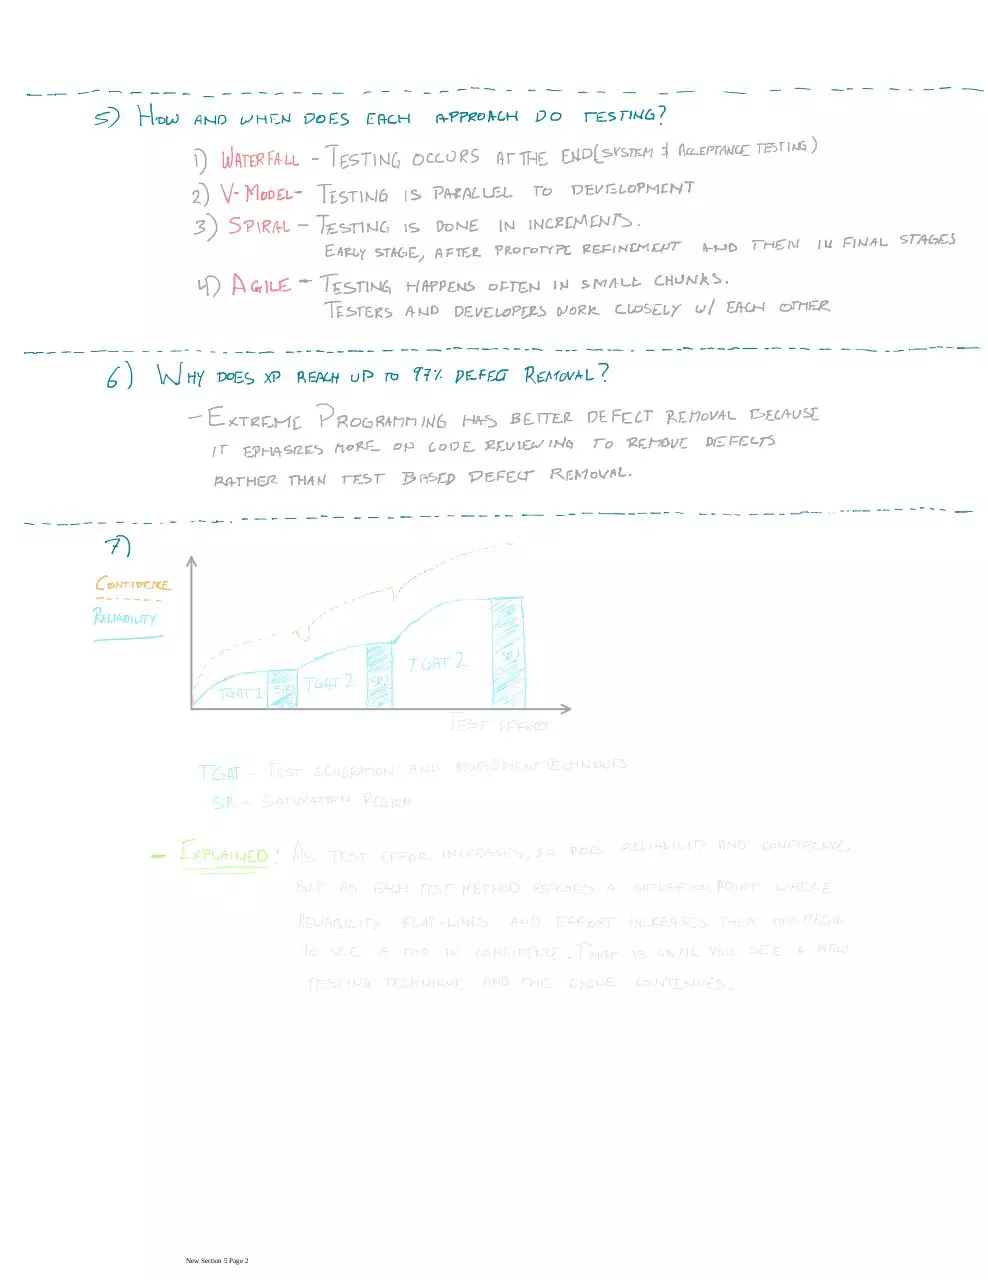 5) HOW AND WHEN DOES EACH APPROACH DO TESTING?
1) WATERFALL - TESTING OCCURS AT THE END (SYSTEM & ACCEPTANCE TESTING)
2) V-MODEL- TESTING IS PARALLEL TO DEVELOPMENT
3) SPIRAL - TESTING IS DONE IN INCREMENTS.
EARLY STAGE, AFTER PROTOTYPE REFINEMENT AND THEN IN FINAL STAGES
4) AGILE - TESTING HAPPENS OFTEN IN SMALL CHUNKS.
TESTERS AND DEVELOPERS WORK CLOSELY W/ EACH OTHER
6) WHY DOES XP REACH UP TO 97% DEFECT REMOVAL?
- EXTREME PROGRAMMING HAS BETTER DEFECT REMOVAL BECAUSE
IT EPHASIZES MORE ON CODE REVIEWING TO REMOVE DEFECTS
RATHER THAN TEST BASED DEFECT REMOVAL.
7)
CONFIDENCE
RELIABILITY
TGAT 1 SR1 TGAT 2 SR2 TGAT 2 SR
TEST EFFORT
TGAT - TEST GENERATION AND ASSESSMENT TECHNIQUES
SR - SATURATION REGION
- EXPLAINED: AS TEST EFFOR INCREASES, SO DOES RELIABILITY AND CONFIDENCE,
BUT AS EACH TEST METHOD REACHES A SATURATION POINT WHERE
RELIABILITY FLAT-LINES AND EFFORT INCREASES THEN YOU BEGIN
TO SEE A DIP IN CONFIDENCE. THAT IS UNTIL YOU SEE A NEW
TESTING TECHNIQUE AND THE CYCLE CONTINUES.
New Section 5 Page 2